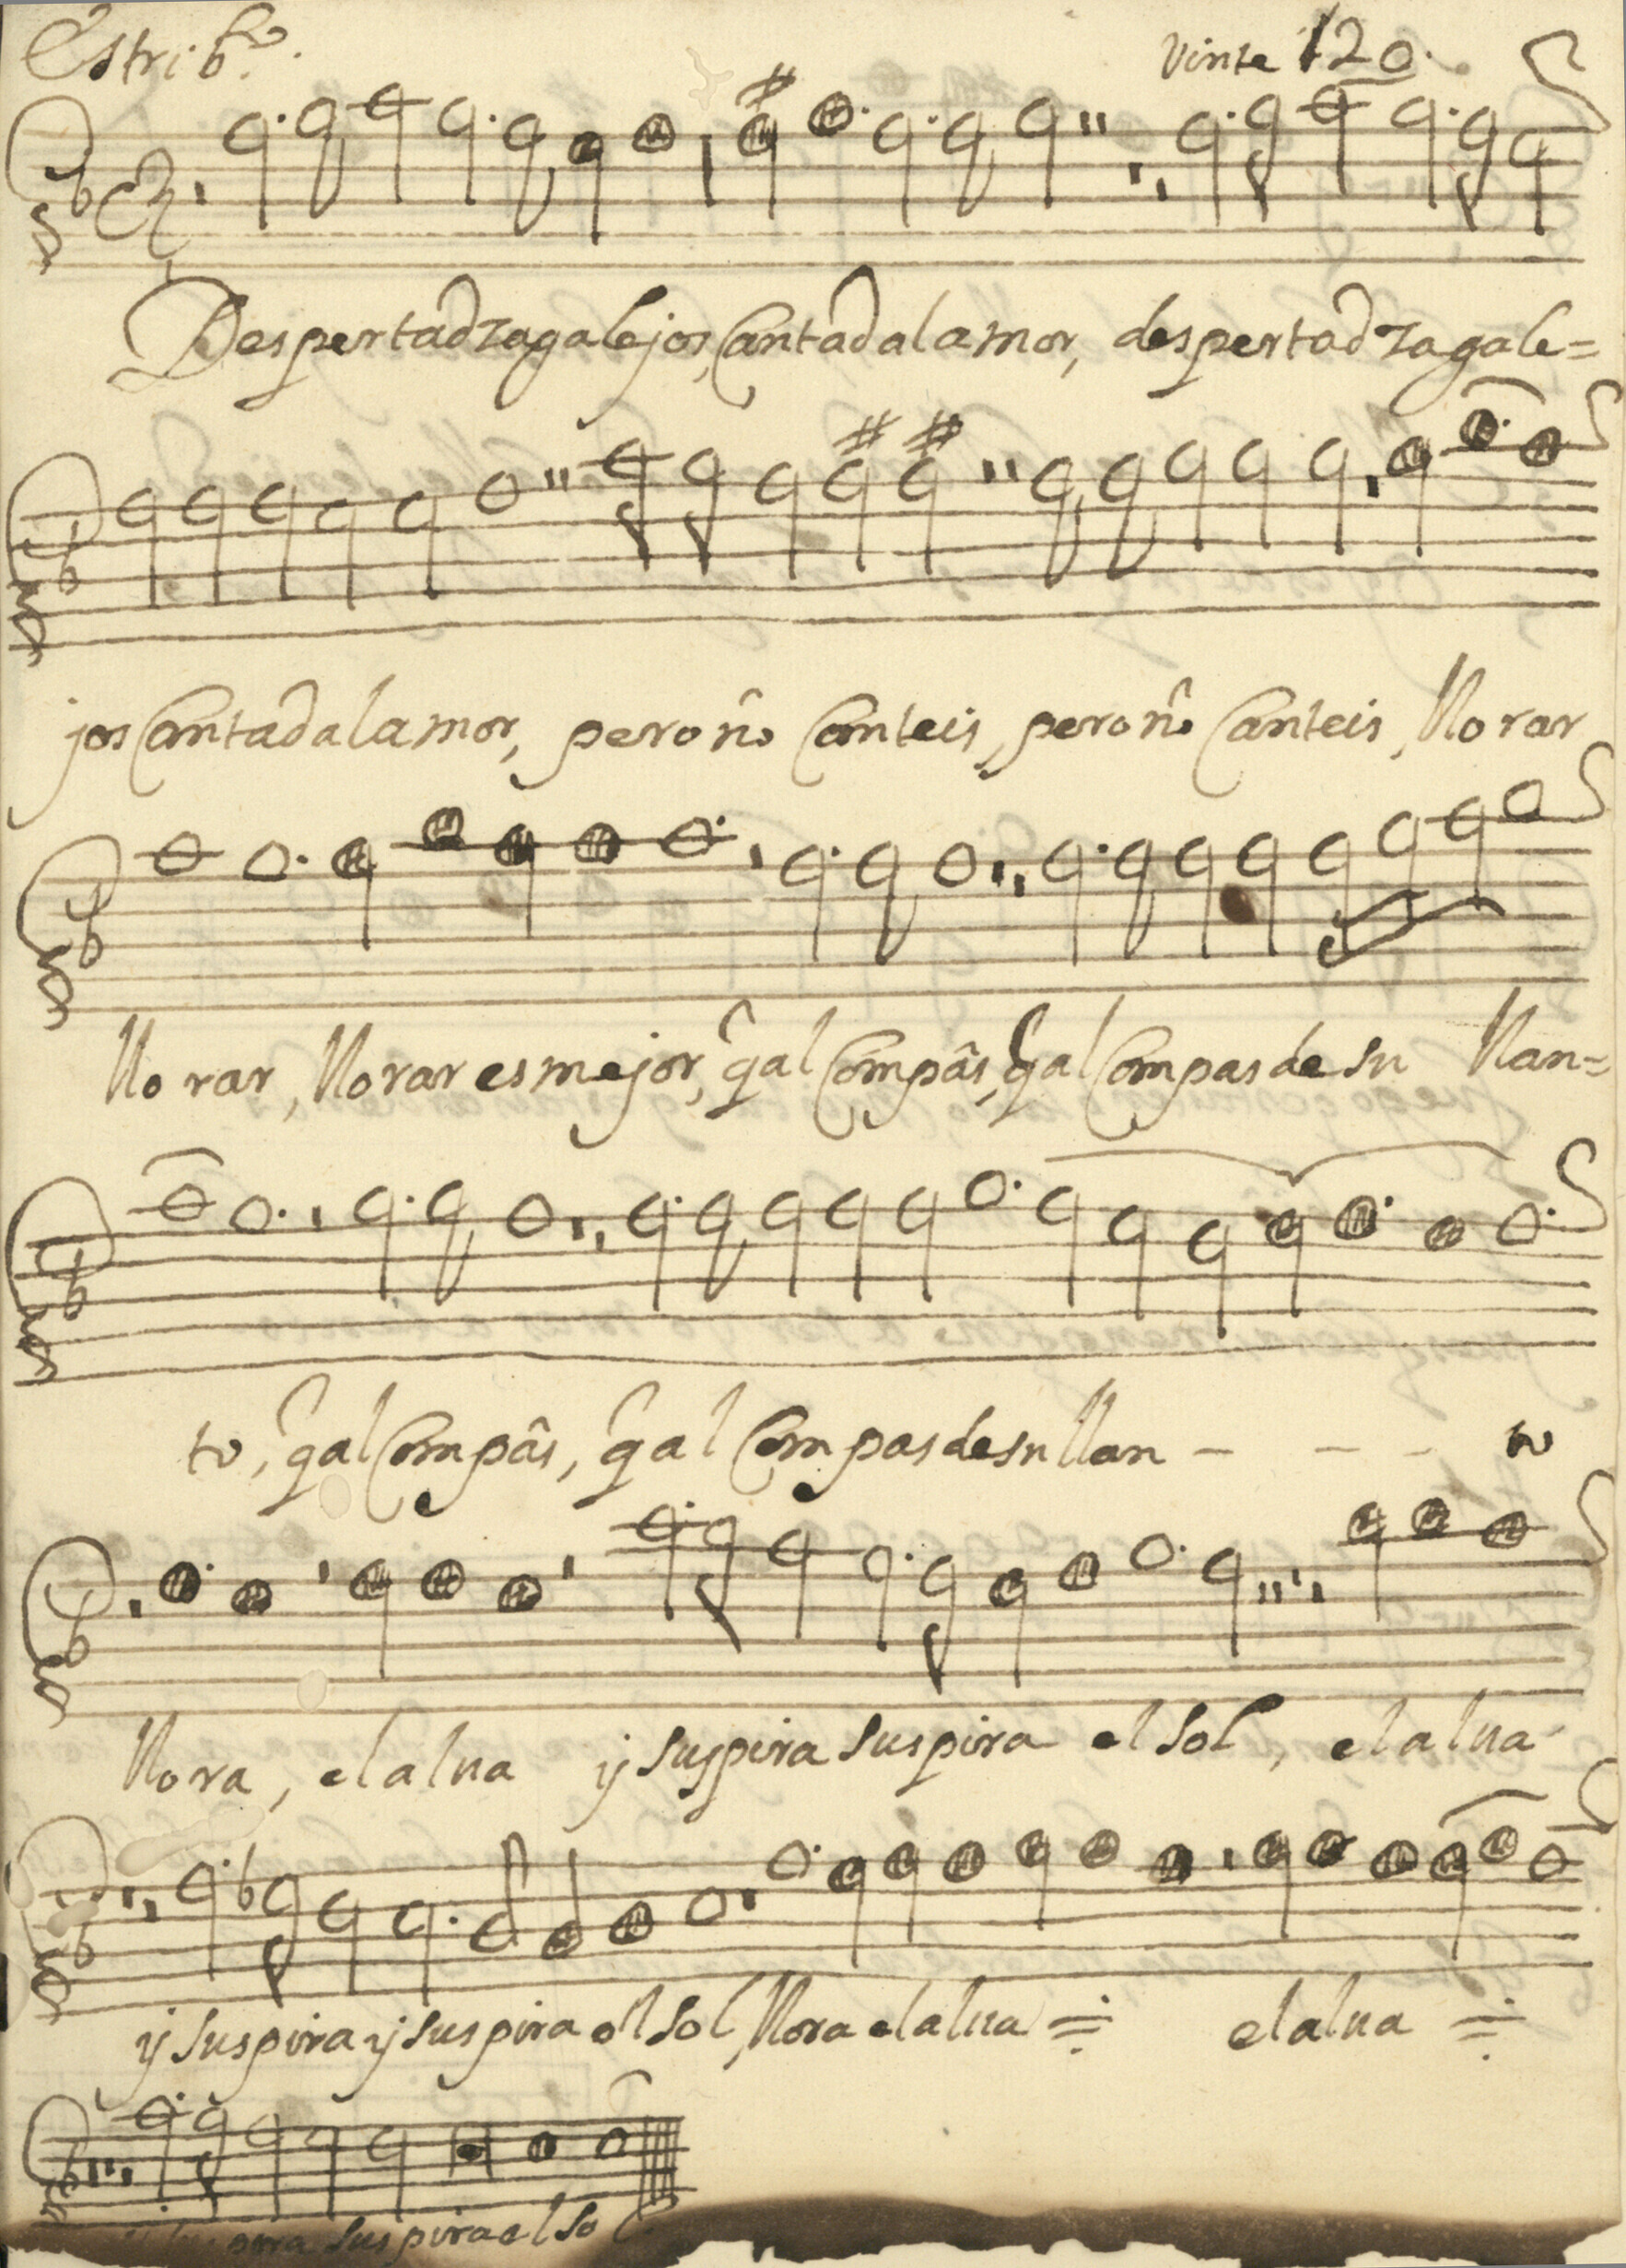 Estribᵒ. Tiple 1º 2o.
Despertad zagalejos, Cantad al amor, despertad zagale=
jos Cantad al amor, pero nô Canteis, pero nô Canteis, llorar
llorar, llorar es mejor, q̃ al Compâs, q̃ al Compas de su llan=
to, q̃ al Compâs, q̃ al Compas de su llan - - - - to
llora, el alua y suspira suspira el sol, el alua
y suspira y suspira el sol, llora el alua = el alua =
pira suspira el sol.